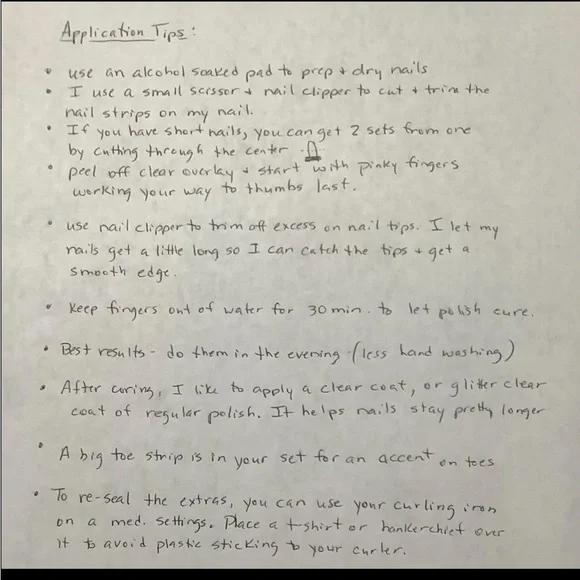 Application Tips:
• use an alcohol soaked pad to prep + dry nails
• I use a small scissor + nail clipper to cut + trim the
nail strips on my nail.
• If you have short nails, you can get 2 sets from one
by cutting through the center.
• peel off clear overlay + start with pinky fingers
working your way to thumbs last.
• use nail clipper to trim off excess on nail tips. I let my
nails get a little long so I can catch the tips + get a
smooth edge.
• Keep fingers out of water for 30 min. to let polish cure.
• Best results - do them in the evening - (less hand washing)
• After curing, I like to apply a clear coat, or glitter clear
coat of regular polish. It helps nails stay pretty longer
• A big toe strip is in your set for an accent on toes
• To re-seal the extras, you can use your curling iron
on a med. settings. Place a t-shirt or hankerchief over
it to avoid plastic sticking to your curler.